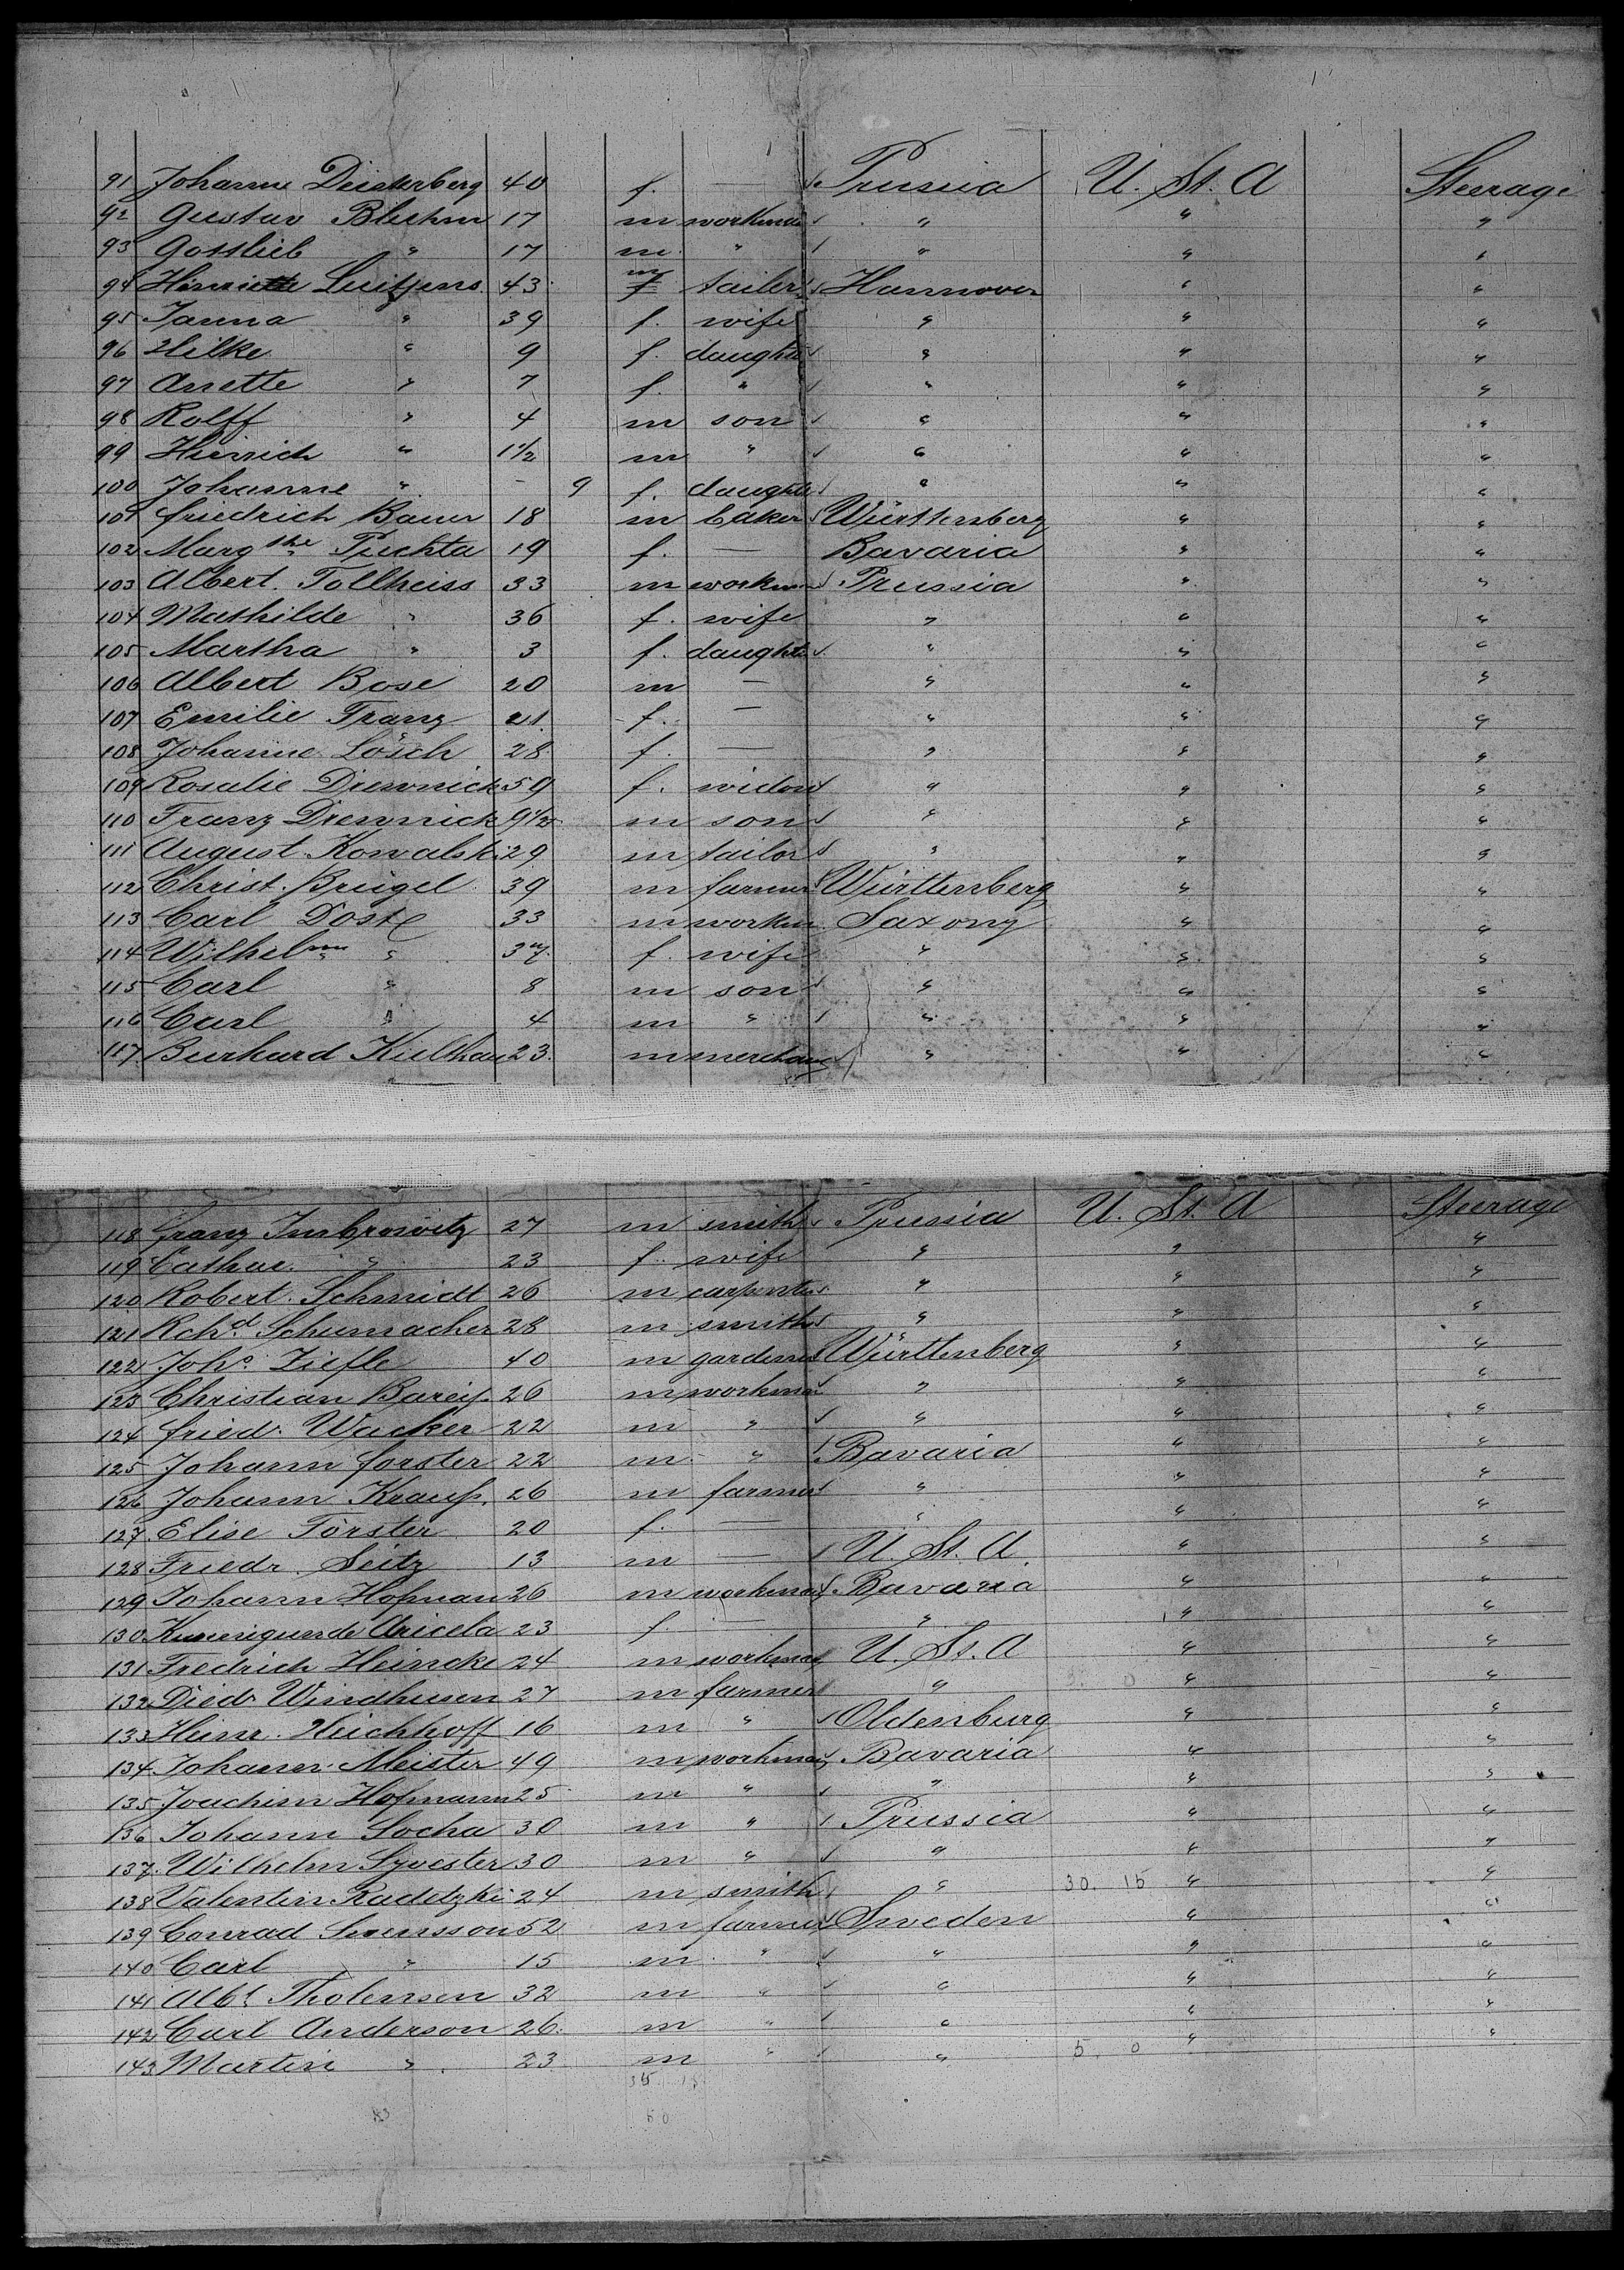 91 Johanne Diesterberg 40 f. — Prussia U. St. A Steerage
92 Gustav Bluhm 17 m workman " " "
93 Gottlieb " 17 m " " " "
94 Henriette Luitjens 43 m f tailor Hannover " "
95 Janna " 39 f. wife " " "
96 Hilke " 9 f. daughter " " "
97 Anette " 7 f. " " " "
98 Rolff " 4 m son " " "
99 Hinrich " 1 1/2 m " " " "
100 Johanne " - 9 f. daughter " " "
101 Friedrich Bauer 18 m baker Württenberg " "
102 Margthe Puchta 19 f. — Bavaria " "
103 Albert Tollheiss 33 m workman Prussia " "
104 Mathilde " 36 f. wife " " "
105 Martha " 3 f. daughter " " "
106 Albert Bose 20 m — " " "
107 Emilie Franz 21 f. — " " "
108 Johanne Lösch 28 f. — " " "
109 Rosalie Drewnick 59 f. widow " " "
110 Franz Drewnick 9 1/2 m son " " "
111 August Kowalski 29 m tailor " " "
112 Christ. Breigel 39 m farmer Württenberg " "
113 Carl Dost 33 m workm Saxony " "
114 Wilhelm " 37 f. wife " " "
115 Carl " 8 m son " " "
116 Carl " 4 m " " " "
117 Burkard Kullhau 23 m merchant " " "
118 Franz Imbrowitz 27 m smith Prussia U. St. A Steerage
119 Cathar. " 23 f. wife " " "
120 Robert Schmidt 26 m carpenter " " "
121 Rchd Schumacher 28 m smith " " "
122 Johs Ziefle 40 m gardener Württenberg " "
123 Christian Bareiß 26 m workman " " "
124 Fried. Wacker 22 m " " " "
125 Johann Forster 22 m " Bavaria " "
126 Johann Krauß 26 m farmer " " "
127 Elise Förster 20 f. — " " "
128 Friedr. Seitz 13 m — U. St. A. " "
129 Johann Hofman 26 m workman Bavaria " "
130 Kunnigunde 23 f. — " " "
131 Fredrich Heincke 24 m workman U. St. A " "
132 Died. Windhusen 27 m farmer " " "
133 Heinr. Heichhoff 16 m " Oldenburg " "
134 Johann Meister 49 m workman Bavaria " "
135 Joachim Hofmann 25 m " " " "
136 Johann Socha 30 m " Prussia " "
137 Wilhelm Syvester 30 m " " " "
138 Valentin Radetzki 24 m smith " 30. 15 " "
139 Conrad Svensson 52 m farmer Sweden " "
140 Carl " 15 m " " " "
141 Albt Tholensen 32 m " " " "
142 Carl Anderson 26. m " " " "
143 Martin " 23 m " " 5. 0 " "